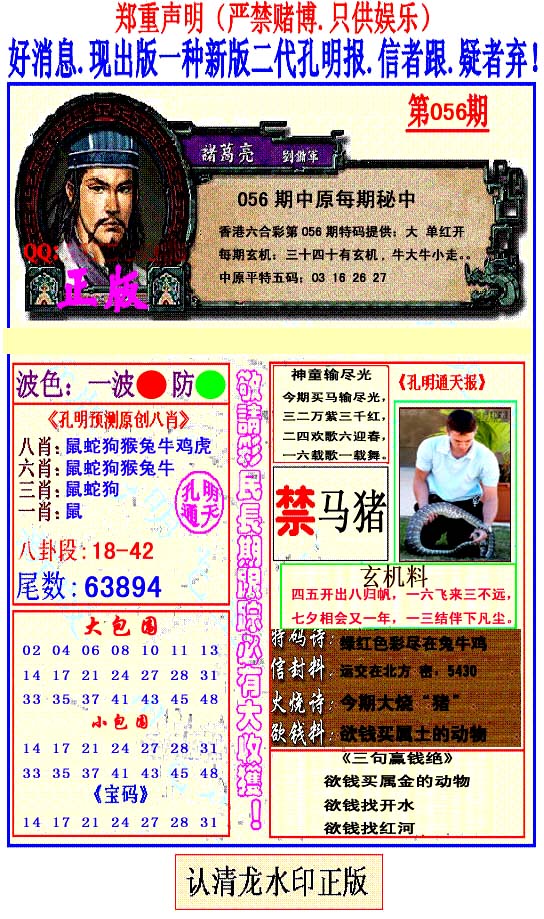 郑重声明（严禁赌博.只供娱乐）
好消息.现出版一种新版二代孔明报.信者跟.疑者弃!
第056期
諸葛亮 劉備軍
056 期中原每期秘中
香港六合彩第 056 期特码提供：大 单红开
每期玄机：三十四十有玄机，牛大牛小走。。
中原平特五码：03 16 26 27
QQ:
正版
波色：一波 防
《孔明预测原创八肖》
八肖:鼠蛇狗猴兔牛鸡虎
六肖:鼠蛇狗猴兔牛
三肖:鼠蛇狗
一肖:鼠
孔明
通天
八卦段:18-42
尾数:63894
大包围
02 04 06 08 10 11 13
14 17 21 24 27 28 31
33 35 37 41 43 45 48
小包围
14 17 21 24 27 28 31
33 35 37 41 43 45 48
《宝码》
14 17 21 24 27 28 31
敬請彩民長期跟踪必有大收獲！
神童输尽光
今期买马输尽光，
三二万紫三千红，
二四欢歌六迎春，
一六载歌一载舞。
《孔明通天报》
禁马猪
玄机料
四五开出八归帆，一六飞来三不远，
七夕相会又一年，一三结伴下凡尘。
特码诗:绿红色彩尽在兔牛鸡
信封料:运交在北方 密．5430
火烧诗:今期大烧“猪”
欲钱料:欲钱买属土的动物
《三句赢钱绝》
欲钱买属金的动物
欲钱找开水
欲钱找红河
认清龙水印正版